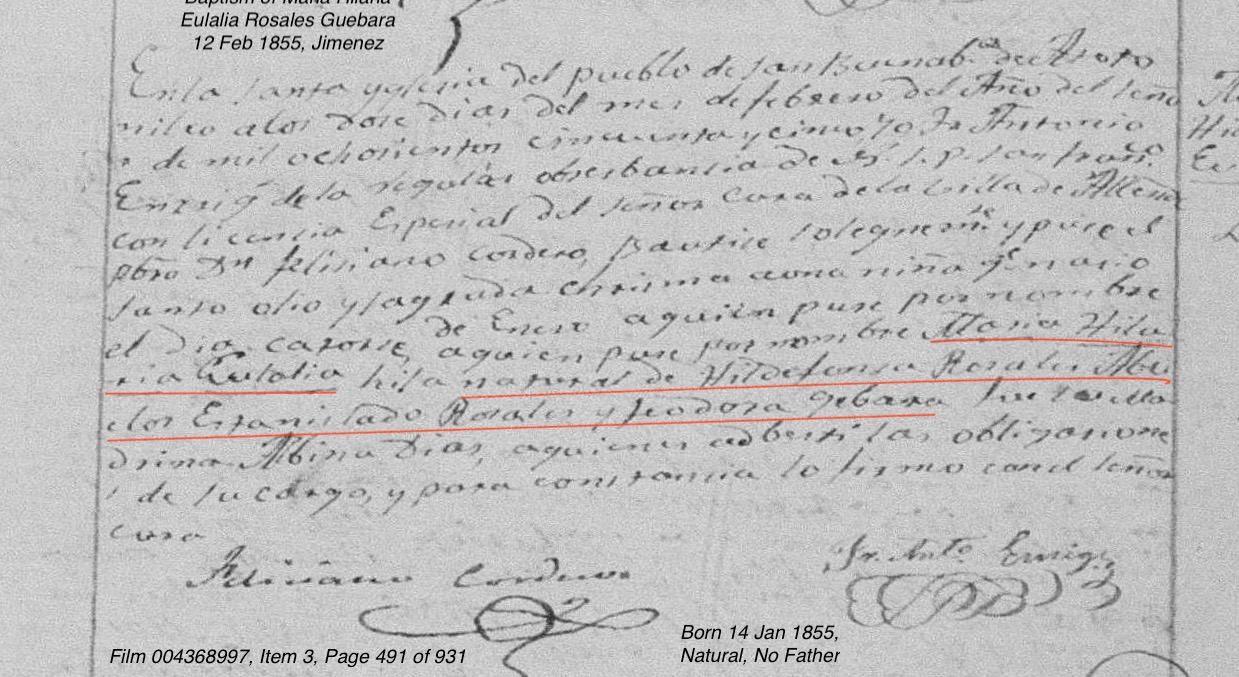 Baptism of Maria Hilaria
Eulalia Rosales Guebara
12 Feb 1855, Jimenez
En la Santa yglesia del pueblo de San Buenab.ª de Atoto
nilco a los dose dias del mes de febrero del Año del Seño
r de mil ochosientos cincuenta y cinco yo Fr Antonio
de la regular obserbansia de N. S. P. San Fran.co
con licencia Espesial del señor cura de la billa de Allende
pbro Dn felisiano cordero, Bautise solegnem.te y puse el
santo olio y sagrada chrisma a una niña q.e nasio
el dia catorse, de Enero a quien puse por nombre
a quien puse por nombre Maria Hila
ria Eulalia hija natural de Hildefonsa Rosales Abu
elos Estanislado Rosales y teodora gebara fue su Ma
drina Albina Dias, a quienes adberti las obligasione
s de su cargo, y para constancia lo firmo con el señor
cura
Felisiano Cordero
Fr. Ant.o Enriq.z
Born 14 Jan 1855,
Natural, No Father
Film 004368997, Item 3, Page 491 of 931